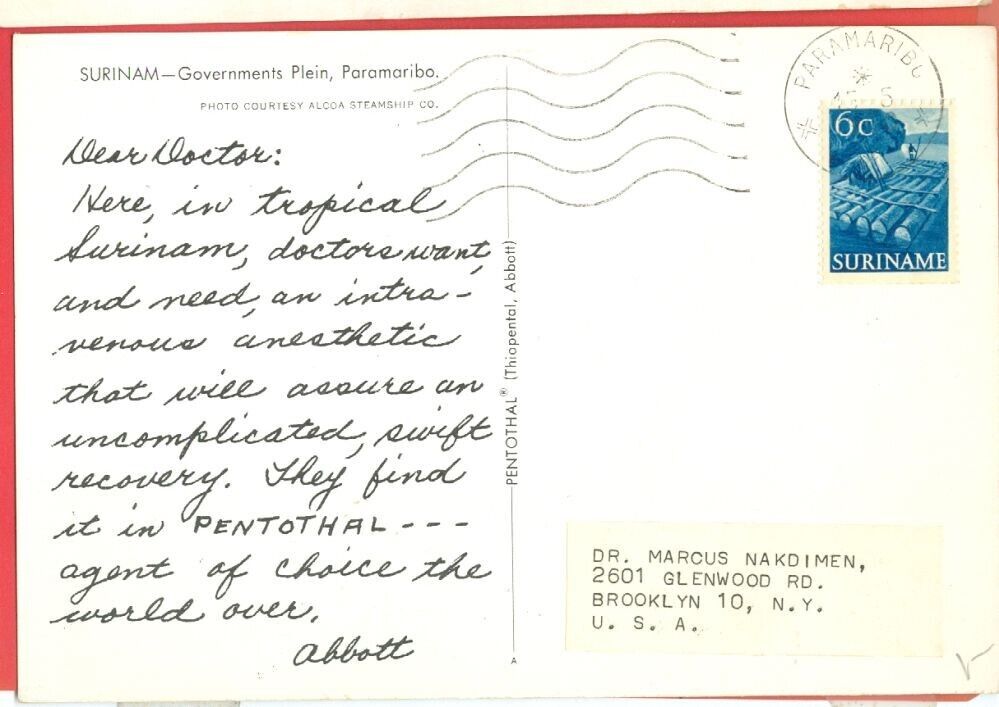 SURINAM—Governments Plein, Paramaribo.
PHOTO COURTESY ALCOA STEAMSHIP CO.
Dear Doctor:
Here, in tropical
Surinam, doctors want,
and need, an intra-
venous anesthetic
that will assure an
uncomplicated, swift
recovery. They find
it in PENTOTHAL ---
agent of choice the
world over.
Abbott
PENTOTHAL® (Thiopental, Abbott)
A
PARAMARIBO
5
6c
SURINAME
DR. MARCUS NAKDIMEN,
2601 GLENWOOD RD.
BROOKLYN 10, N.Y.
U. S. A.